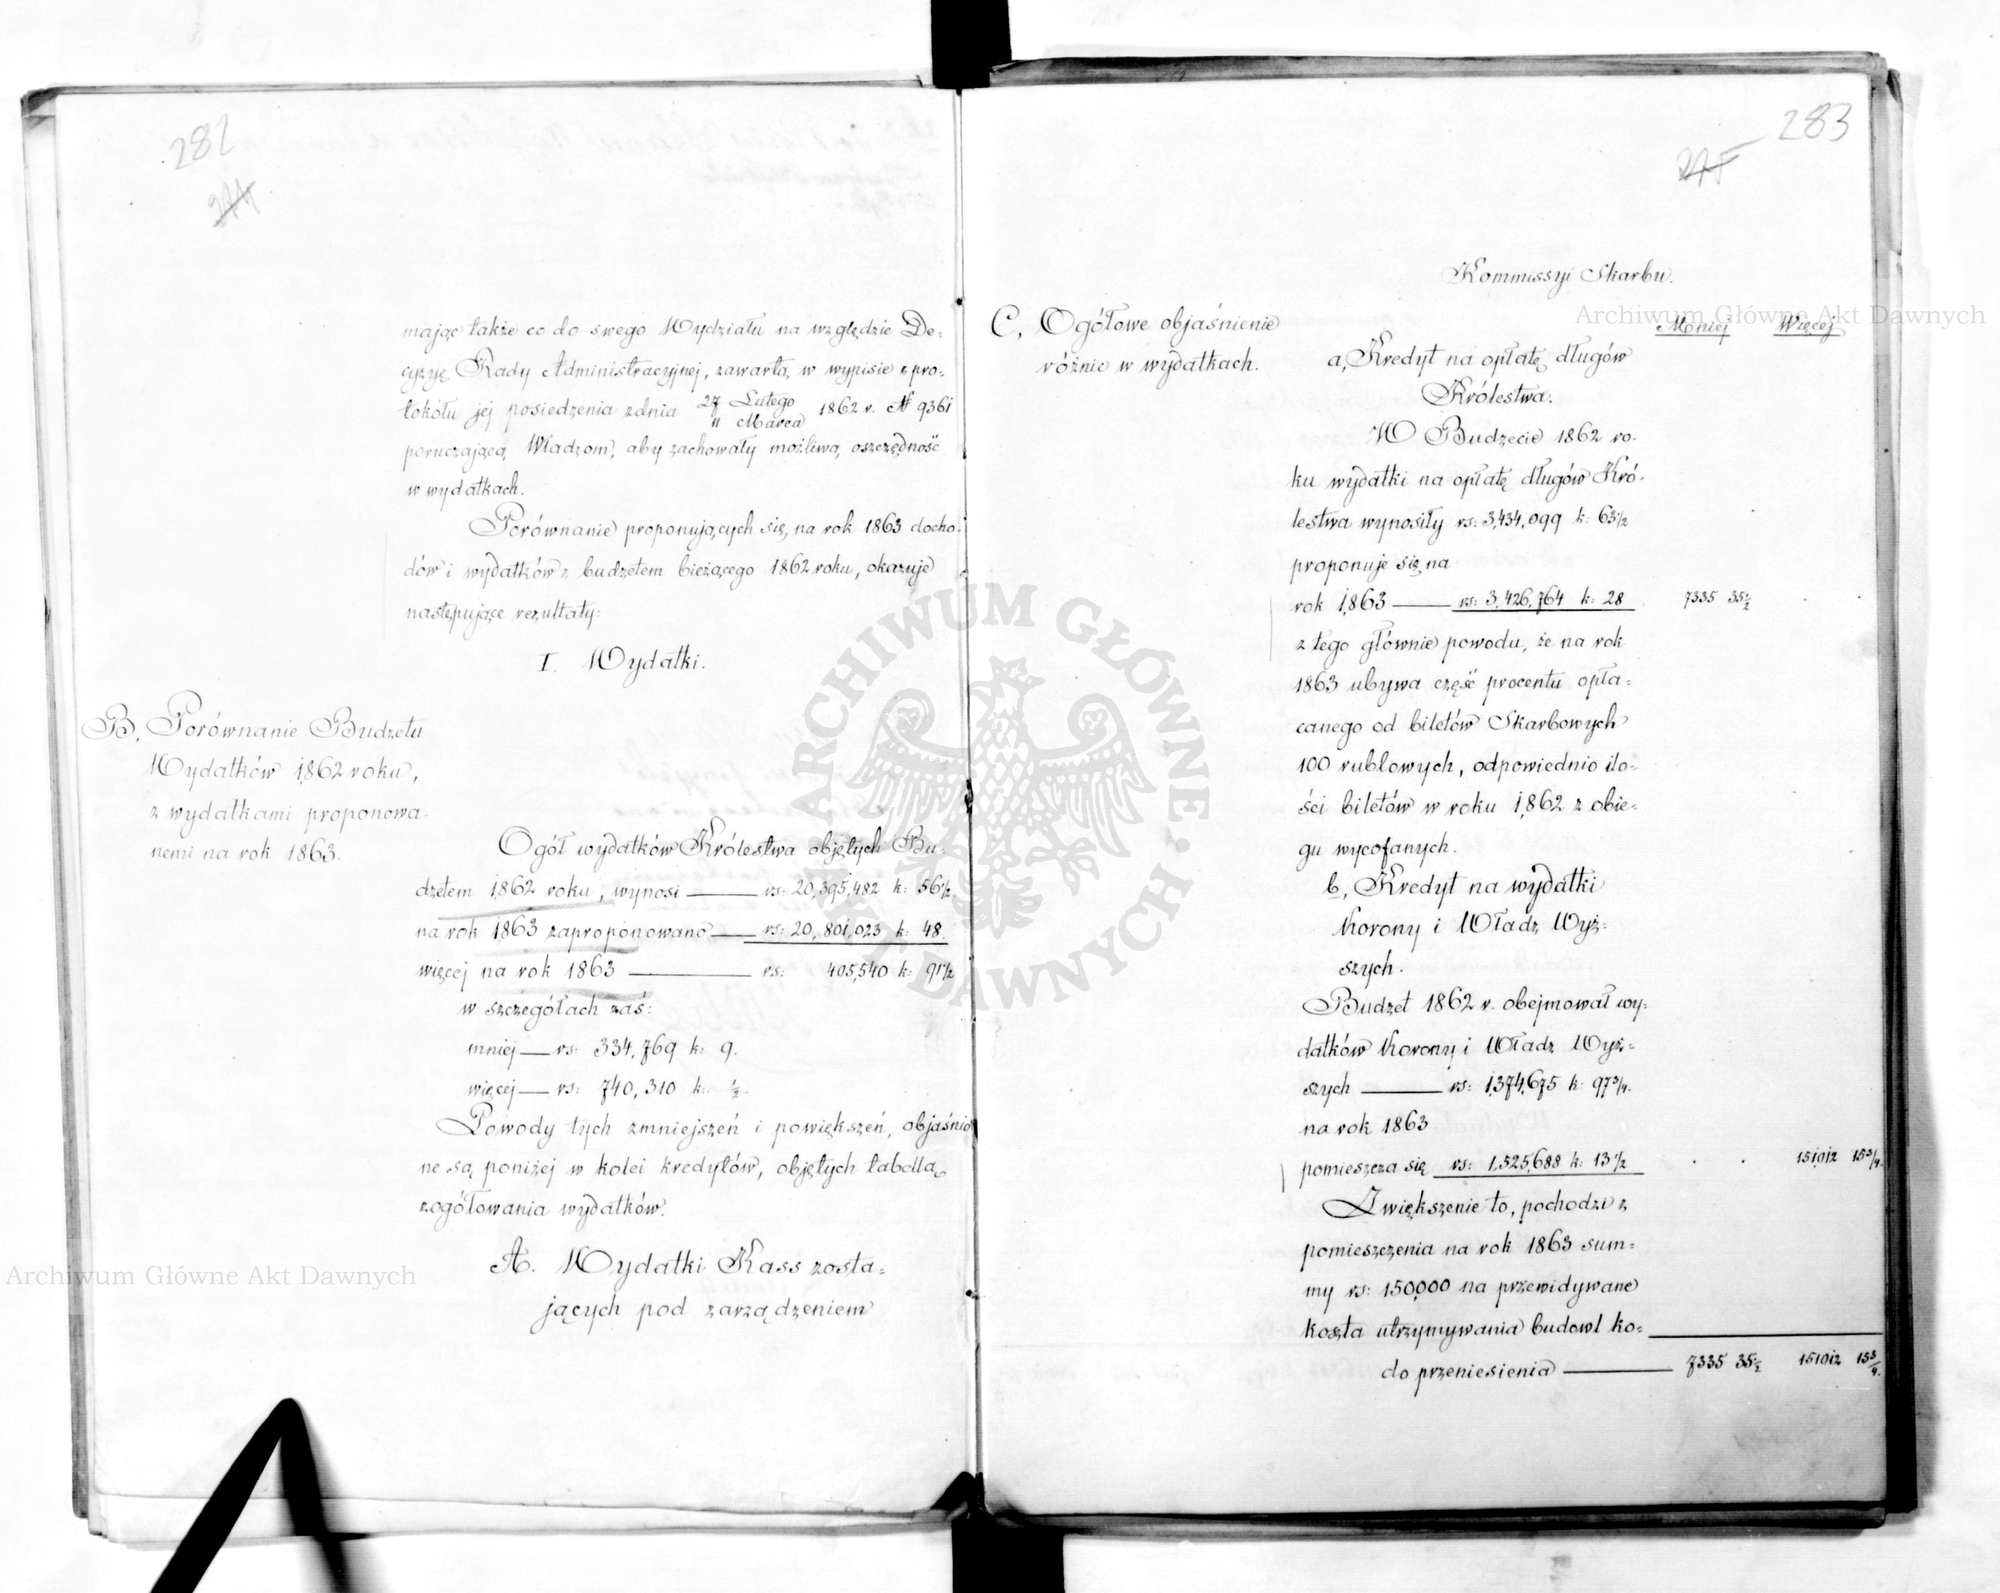 282
274
mając także co do swego Wydziału na względzie De=
cyzyę Rady Administracyjnej, zawartą, w wypisie z pro=
tokółu jej posiedzenia z dnia 27 Lutego
" Marca 1862 r. № 9361
poruczającą Władzom, aby zachowały możliwą, oszczędność
w wydatkach.
Porównanie proponujących się, na rok 1863 docho=
dów i wydatków z budżetem bieżącego 1862 roku, okazuje
następujące rezultaty:
I. Wydatki.
B, Porównanie Budżetu
Wydatków 1862 roku,
z wydatkami proponowa-
nemi na rok 1863.
Ogół wydatków Królestwa objętych Bu-
dżetem 1862 roku, wynosi — rs: 20,395,482 k: 56 1/2
na rok 1863 zaproponowano — rs: 20,801,023 k: 48.
więcej na rok 1863 — rs: 405,540 k: 91 1/2
w szczegółach zaś:
mniej — rs: 334,769 k: 9.
więcej — rs: 740,310 k: 1/2.
Powody tych zmniejszeń i powiększeń, objaśnio
ne są, poniżej w kolei kredytów, objętych tabellą
zogółowania wydatków.
A. Wydatki Kass zosta=
jących pod zarządzeniem
283
275
Kommissyi Skarbu.
C, Ogółowe objaśnienie
różnic w wydatkach.
Mniej Więcej
a, Kredyt na opłatę długów
Królestwa.
W Budżecie 1862 ro-
ku wydatki na opłatę długów Kró-
lestwa wynosiły rs: 3,434,099 k: 63 1/2
proponuje się na
rok 1863 — rs: 3,426,764 k: 28 7335 35 1/2
z tego głównie powodu, że na rok
1863 ubywa część procentu opła=
canego od biletów Skarbowych
100 rublowych, odpowiednio ilo=
ści biletów w roku 1862 z obie=
gu wycofanych.
b, Kredyt na wydatki
Korony i Władz Wyż=
szych.
Budżet 1862 r. obejmował wy=
datków Korony i Władz Wyż=
szych — rs: 1,374,675 k: 97 3/4.
na rok 1863
pomieszcza się rs: 1,525,688 k: 13 1/2 . . 151,012 15 3/4.
Zwiększenie to, pochodzi z
pomieszczenia na rok 1863 sum=
my rs: 150,000 na przewidywane
koszta utrzymywania budowl ko=
do przeniesienia — 7335 35 1/2 151012 15 3/4.
Archiwum Główne Akt Dawnych
Archiwum Główne Akt Dawnych
ARCHIWUM GŁÓWNE AKT DAWNYCH